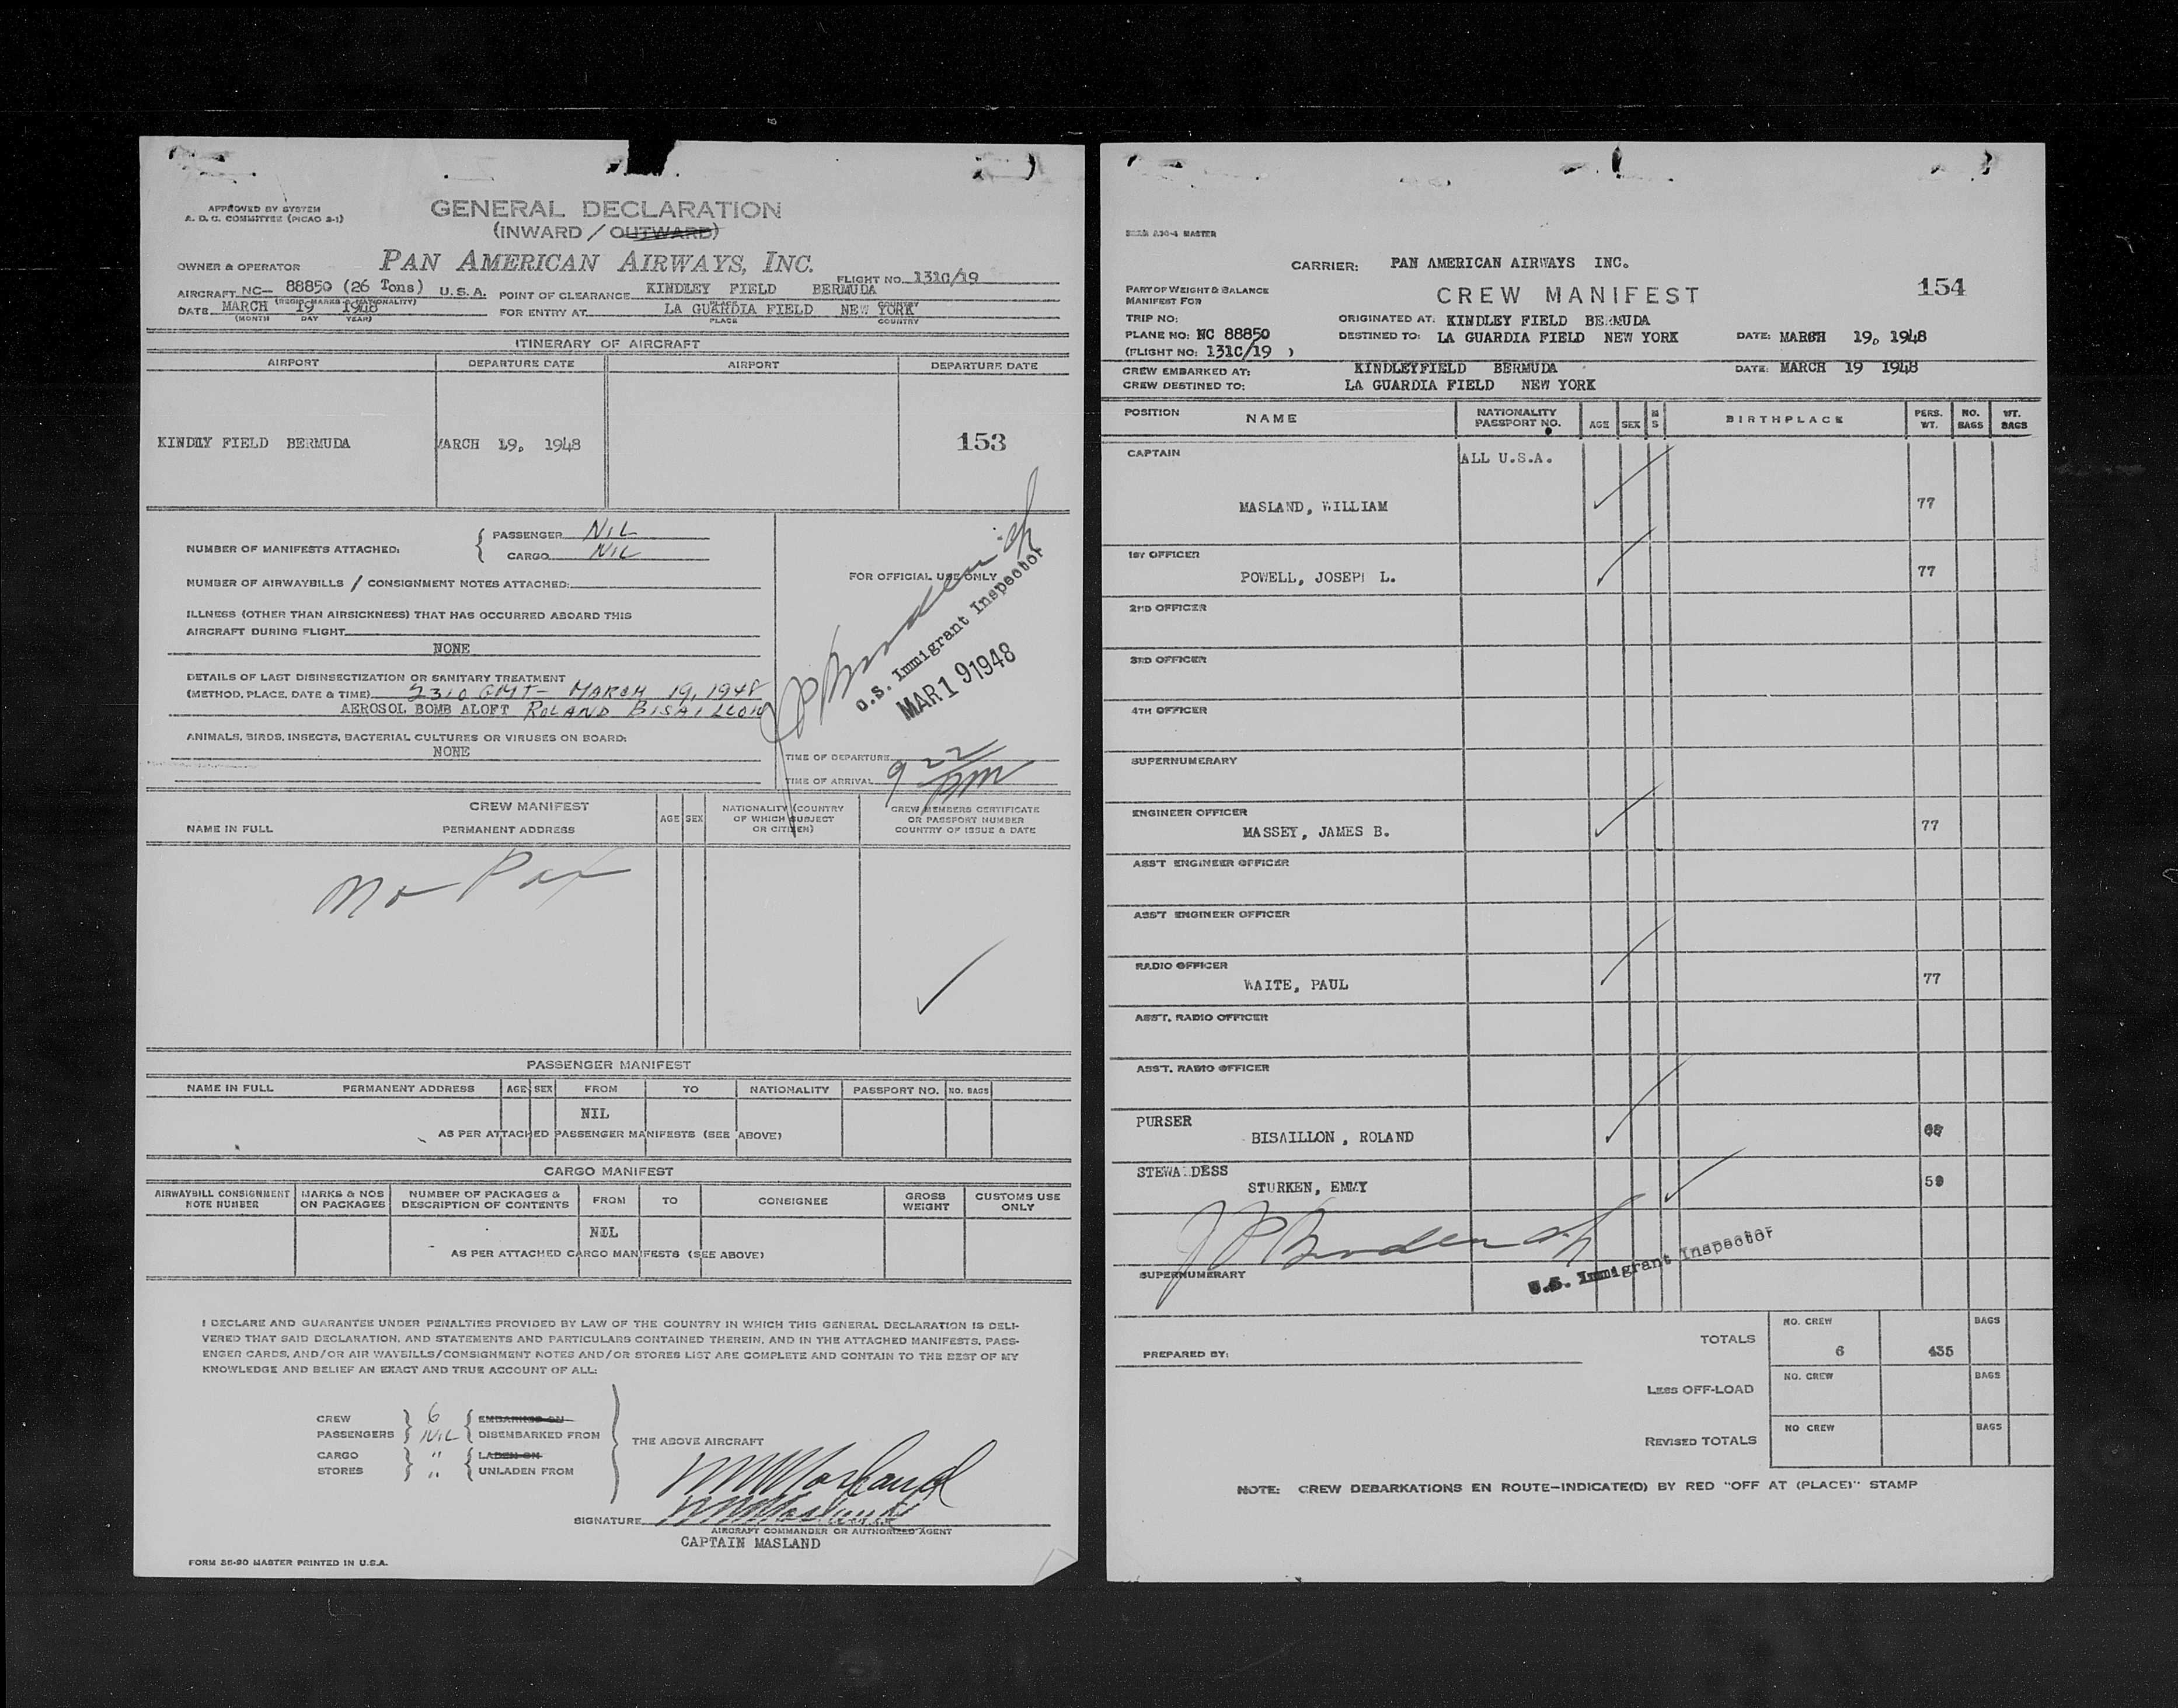 APPROVED BY SYSTEM
A. D. C. COMMITTEE (PICAO 2-1)
GENERAL DECLARATION
(INWARD / OUTWARD)
OWNER & OPERATOR PAN AMERICAN AIRWAYS, INC. FLIGHT NO. 131C/19
AIRCRAFT NC- 88850 (26 Tons) U.S.A. POINT OF CLEARANCE KINDLEY FIELD BERMUDA
(REGIS. MARKS & NATIONALITY) PLACE COUNTRY
DATE MARCH 19 1948 FOR ENTRY AT LA GUARDIA FIELD NEW YORK
(MONTH DAY YEAR) PLACE COUNTRY
ITINERARY OF AIRCRAFT
AIRPORT DEPARTURE DATE AIRPORT DEPARTURE DATE
KINDLY FIELD BERMUDA MARCH 19, 1948 153
NUMBER OF MANIFESTS ATTACHED: { PASSENGER NIL
CARGO NIL
FOR OFFICIAL USE ONLY
NUMBER OF AIRWAYBILLS / CONSIGNMENT NOTES ATTACHED:
ILLNESS (OTHER THAN AIRSICKNESS) THAT HAS OCCURRED ABOARD THIS
AIRCRAFT DURING FLIGHT
NONE
U.S. Immigrant Inspector
MAR 19 1948
DETAILS OF LAST DISINSECTIZATION OR SANITARY TREATMENT
(METHOD, PLACE, DATE & TIME) 2310 GMT- MARCH 19, 1948
AEROSOL BOMB ALOFT ROLAND BISAILLON
ANIMALS, BIRDS, INSECTS, BACTERIAL CULTURES OR VIRUSES ON BOARD:
NONE
TIME OF DEPARTURE
TIME OF ARRIVAL 9 22 PM
CREW MANIFEST
NAME IN FULL PERMANENT ADDRESS AGE SEX NATIONALITY (COUNTRY OF WHICH SUBJECT OR CITIZEN) CREW MEMBERS CERTIFICATE OR PASSPORT NUMBER COUNTRY OF ISSUE & DATE
No Pax
PASSENGER MANIFEST
NAME IN FULL PERMANENT ADDRESS AGE SEX FROM TO NATIONALITY PASSPORT NO. NO. BAGS
NIL
AS PER ATTACHED PASSENGER MANIFESTS (SEE ABOVE)
CARGO MANIFEST
AIRWAYBILL CONSIGNMENT NOTE NUMBER MARKS & NOS ON PACKAGES NUMBER OF PACKAGES & DESCRIPTION OF CONTENTS FROM TO CONSIGNEE GROSS WEIGHT CUSTOMS USE ONLY
NIL
AS PER ATTACHED CARGO MANIFESTS (SEE ABOVE)
I DECLARE AND GUARANTEE UNDER PENALTIES PROVIDED BY LAW OF THE COUNTRY IN WHICH THIS GENERAL DECLARATION IS DELI-
VERED THAT SAID DECLARATION, AND STATEMENTS AND PARTICULARS CONTAINED THEREIN, AND IN THE ATTACHED MANIFESTS, PASS-
ENGER CARDS, AND/OR AIR WAYBILLS/CONSIGNMENT NOTES AND/OR STORES LIST ARE COMPLETE AND CONTAIN TO THE BEST OF MY
KNOWLEDGE AND BELIEF AN EXACT AND TRUE ACCOUNT OF ALL:
CREW 6 EMBARKED ON
PASSENGERS NIL DISEMBARKED FROM
THE ABOVE AIRCRAFT
CARGO " LADEN ON
STORES " UNLADEN FROM
SIGNATURE
AIRCRAFT COMMANDER OR AUTHORIZED AGENT
CAPTAIN MASLAND
FORM 86-90 MASTER PRINTED IN U.S.A.
MASTER
CARRIER: PAN AMERICAN AIRWAYS INC.
PART OF WEIGHT & BALANCE
MANIFEST FOR
CREW MANIFEST 154
TRIP NO: ORIGINATED AT: KINDLEY FIELD BERMUDA
PLANE NO: NC 88850 DESTINED TO: LA GUARDIA FIELD NEW YORK DATE: MARCH 19, 1948
(FLIGHT NO: 131C/19 )
CREW EMBARKED AT: KINDLEYFIELD BERMUDA DATE: MARCH 19 1948
CREW DESTINED TO: LA GUARDIA FIELD NEW YORK
POSITION NAME NATIONALITY PASSPORT NO. AGE SEX M S BIRTHPLACE PERS. WT. NO. BAGS WT. BAGS
CAPTAIN ALL U.S.A.
MASLAND, WILLIAM 77
1ST OFFICER
POWELL, JOSEPH L. 77
2ND OFFICER
3RD OFFICER
4TH OFFICER
SUPERNUMERARY
ENGINEER OFFICER
MASSEY, JAMES B. 77
ASS'T ENGINEER OFFICER
ASS'T ENGINEER OFFICER
RADIO OFFICER
WAITE, PAUL 77
ASS'T. RADIO OFFICER
ASST. RADIO OFFICER
PURSER
BISAILLON , ROLAND 68
STEWARDESS
STURKEN, EMMY 59
U.S. Immigrant Inspector
SUPERNUMERARY
TOTALS NO. CREW 6 435 BAGS
PREPARED BY:
LESS OFF-LOAD NO. CREW BAGS
REVISED TOTALS NO CREW BAGS
NOTE: CREW DEBARKATIONS EN ROUTE-INDICATE(D) BY RED "OFF AT (PLACE)" STAMP